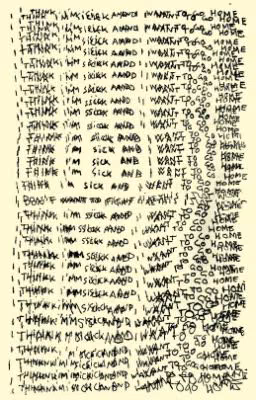 I THINK I'M SICK AND I WANT TO GO HOME
I THINK I'M SICK AND I WANT TO GO HOME
I THINK I'M SICK AND I WANT TO GO HOME
I THINK I'M SICK AND I WANT TO GO HOME
I THINK I'M SICK AND I WANT TO GO HOME
I THINK I'M SICK AND I WANT TO GO HOME
I THINK I'M SICK AND I WANT TO GO HOME
I THINK I'M SICK AND I WANT TO GO HOME
I THINK I'M SICK AND I WANT TO GO HOME
I THINK I'M SICK AND I WANT TO GO HOME
I THINK I'M SICK AND I WANT TO GO HOME
I THINK I'M SICK AND I WANT TO GO HOME
I THINK I'M SICK AND I WANT TO GO HOME
I THINK I'M SICK AND I WANT TO GO HOME
WANT TO HOME
I THINK I'M SICK AND I WANT TO GO HOME
I THINK I'M SICK AND I WANT TO GO HOME
I THINK I'M SICK AND I WANT TO GO HOME
I THINK I'M SICK AND I WANT TO GO HOME
I THINK I'M SICK AND I WANT TO GO HOME
I THINK I'M SICK AND I WANT TO GO HOME
I THINK I'M SICK AND I WANT TO GO HOME
I THINK I'M SICK AND I WANT TO GO HOME
I THINK I'M SICK AND I WANT TO GO HOME
I THINK I'M SICK AND I WANT TO GO HOME
I THINK I'M SICK AND I WANT TO GO HOME
I THINK I'M SICK AND I WANT TO GO HOME